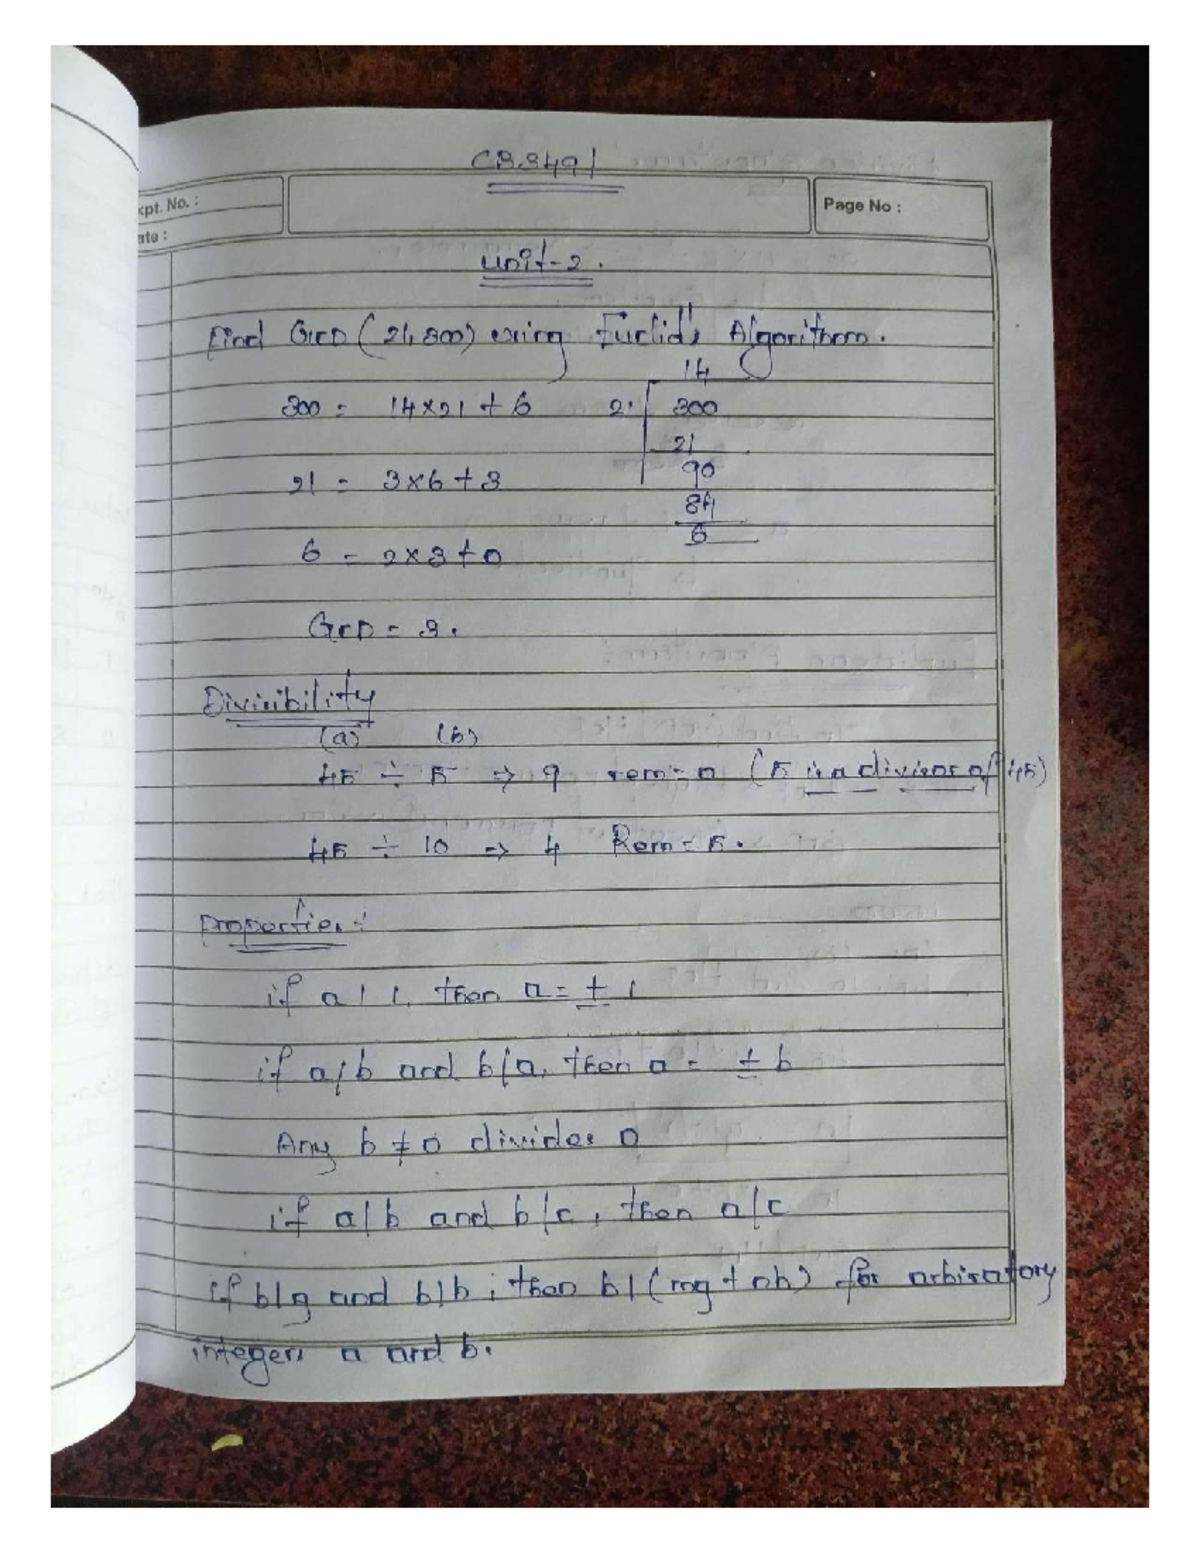 CB3491
Expt. No. :
Page No :
Date :
Unit-2.
Find GCD (21,300) using Euclid's Algorithm.
14
300 = 14×21 + 6 21 300
21
90
21 = 3×6+3
84
6
6 = 2×3+0
GCD = 3.
Divisibility
(a) (b)
45 ÷ 5 ⇒ 9 rem=0 (5 is a divisor of 45)
45 ÷ 10 ⇒ 4 Rem=5.
Properties:-
if a | 1, then a = ± 1
if a/b and b/a, then a = ± b
Any b ≠ 0 divides 0
if a|b and b/c, then a/c
if b|g and b|h ; then b | (mg + nh) for arbiratory
integers a and b.